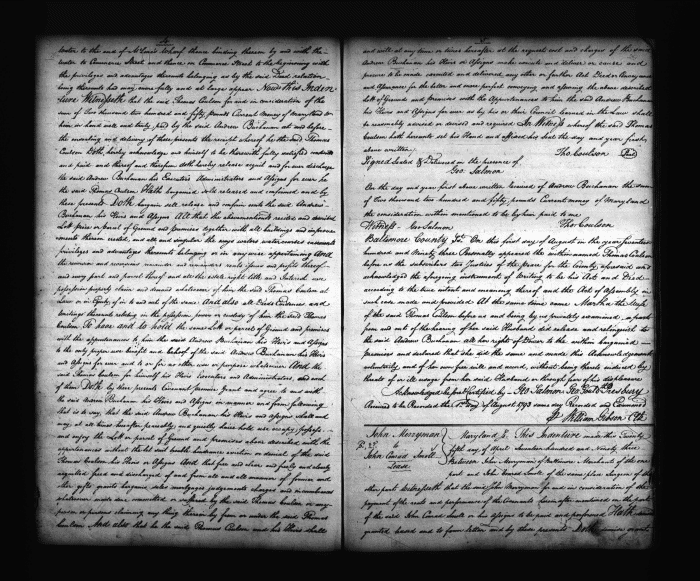 water to the end of McLure's Wharf thence binding thereon by and with the
water to Commerce Street and thence on Commerce Street to the beginning with
the priviledges and advantages thereunto belonging as by the said Deed relation
being thereunto had may more fully and at large appear Now this Inden
ture Witnesseth that the said Thomas Coulson for and in consideration of the
sum of Two thousand two hundred and fifty pounds Current money of Maryland to
him in hand well and truly paid by the said Andrew Buchanan at and before
the ensealing and delivery of these presents the receipt whereof he the said Thomas
Coulson doth hereby acknowledge and himself to be therewith fully satisfied contented
and paid and thereof and therefrom doth hereby release acquit and forever discharge
the said Andrew Buchanan his Executors Administrators and Assigns for ever he
the said Thomas Coulson Hath bargained sold released and confirmed and by
these presents Doth bargain sell release and confirm unto the said Andrew
Buchanan his Heirs and Assigns All that the aforementioned recited and described
Lot piece or parcel of Ground and premises together with all buildings and improve
ments thereon erected and all and singular the ways waters water courses easements
priviledges and advantages thereunto belonging or in any wise appertaining And
the reversion and reversions remainder and remainders rents issues and profits thereof
and every part and parcel thereof and all the estate right title and Interest use
possession property claim and demand whatsoever of him the said Thomas Coulson at
Law or in Equity of in to and out of the same And also all Deeds Evidences and
writings thereunto relating in the possession power or custody of him the said Thomas
Coulson To have and to hold the same Lot or parcel of Ground and premises
with the appurtenances to him the said Andrew Buchanan his Heirs and Assigns
to the only proper use benefit and behoof of the said Andrew Buchanan his Heirs
and Assigns for ever and to or for no other use or purpose whatsoever And the
said Thomas Coulson for himself his Heirs Executors and Administrators and each
of them Doth by these presents Covenant promise grant and agree to and with
the said Andrew Buchanan his Heirs and Assigns in manner and form following
that is to say, that the said Andrew Buchanan his Heirs and Assigns shall and
may at all times hereafter peaceably and quietly have hold use occupy possess
and enjoy the Lot or parcel of Ground and premises above described with the
appurtenances without the let suit trouble hindrance eviction or denial of the said
Thomas Coulson his Heirs or Assigns And that free and clear and freely and clearly
acquitted freed and discharged of and from all and all manner of former and
other gifts grants bargains sales mortgages judgements charges and incumbrances
whatsoever made done committed or suffered by the said Thomas Coulson or any
person or persons claiming any thing therein by from or under the said Thomas
Coulson And also that he the said Thomas Coulson and his Heirs shall
and will at any time or times hereafter at the request costs and charges of the said
Andrew Buchanan his Heirs or Assigns make execute and deliver or cause and
procure to be made executed and delivered any other or further Act Deed or Conveyance
and Assurance for the better and more perfect conveying and assuring the above described
Lot of Ground and premises with the Appurtenances to him the said Andrew Buchanan
his Heirs and Assigns for ever as by his or their Council learned in the Law shall
be reasonably advised or devised and required In Witness whereof the said Thomas
Coulson hath hereunto set his Hand and affixed his Seal the day and year first
above written
Tho. Coulson Seal
Signed Sealed & Delivered in the presence of
Geo Salmon
On the day and year first above written Received of Andrew Buchanan the sum
of Two thousand two hundred and fifty pounds Current money of Maryland
the consideration within mentioned to be by him paid to me
Witness Geo Salmon Tho Coulson
Baltimore County Sc. On this first day of August in the year seventeen
hundred and Ninety three Personally appeared the within named Thomas Coulson
before us the subscribers two Justices of the peace for the County aforesaid and
acknowledged the aforegoing instrument of writing to be his Act and Deed
according to the true intent and meaning thereof and the Act of Assembly in
such case made and provided At the same time came Martha the Wife
of the said Thomas Coulson before us and being by us privately examined apart
from and out of the hearing of her said Husband did release and relinquish to
the said Andrew Buchanan all her right of Dower to the within bargained
premises and declared that she did the same and made this Acknowledgement
voluntarily and of her own free will and accord without being thereto induced by
threats of or ill usage from the said Husband or through fear of his displeasure
Acknowledged before & Certified by Geo Salmon Geo Gouldh Presbury
Received to be Recorded the 1st day of August 1793 same day Recorded and Examined
Pr William Gibson Clk
John Merryman
to
John Conrad Smull
Lease
Maryland Sc. This Indenture made this Twenty
fifth day of April Seventeen hundred and Ninety three
Between John Merryman of Baltimore Merchant of the one
part and John Conrad Smull of the same place Surgeon of the
other part Witnesseth that the said John Merryman for and in consideration of the
payment of the rents and performance of the Covenants herein after mentioned on the part
of the said John Conrad Smull or his Assigns to be paid and performed Hath
granted leased and to farm letten and by these presents Doth grant